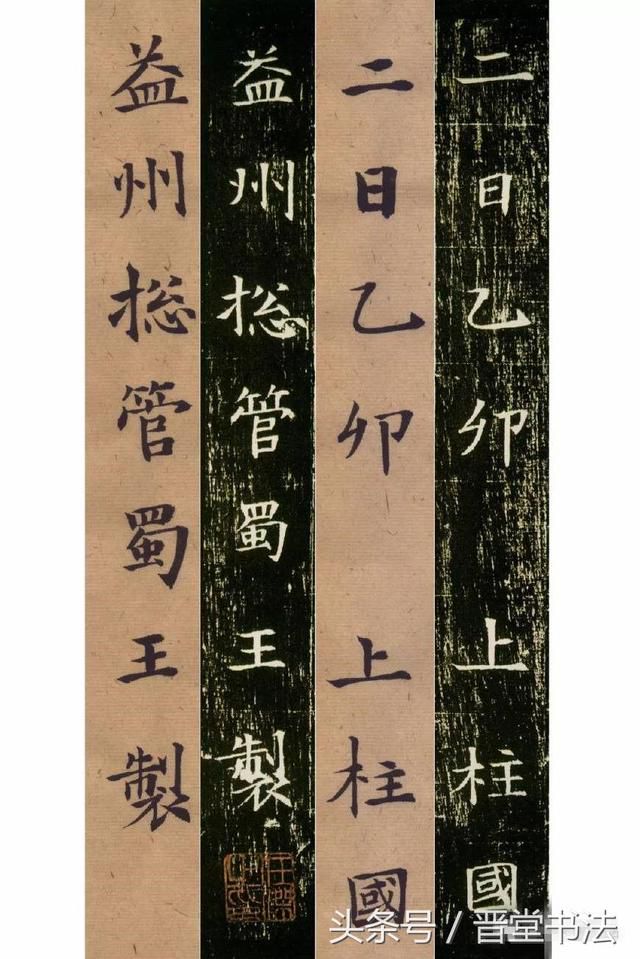 二日乙卯上柱國
二日乙卯上柱國
益州揔管蜀王製
益州揔管蜀王製
头条号／晋堂书法